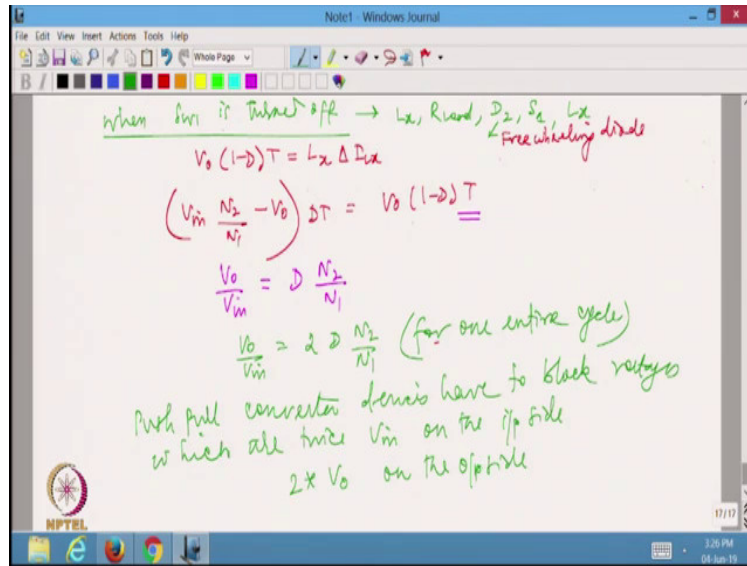 Note1 - Windows Journal
File Edit View Insert Actions Tools Help
Whole Page
B I
when SW1 is turned off → Lx, Rload, D2, S2, Lx
Freewheeling diode
V0 (1-D) T = Lx Δ ILx
(Vin N2/N1 - V0) DT = V0 (1-D) T
V0/Vin = D N2/N1
V0/Vin = 2 D N2/N1 (for one entire cycle)
Push pull converter devices have to block voltages
which are twice Vin on the i/p side
2* V0 on the o/p side
NPTEL
17/17
3:26 PM
04-Jun-19